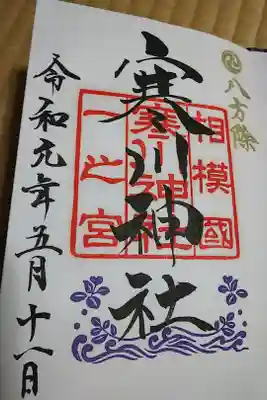 八方除
相模國
寒川神社
寒川神社
一之宮
令和元年五月十八日